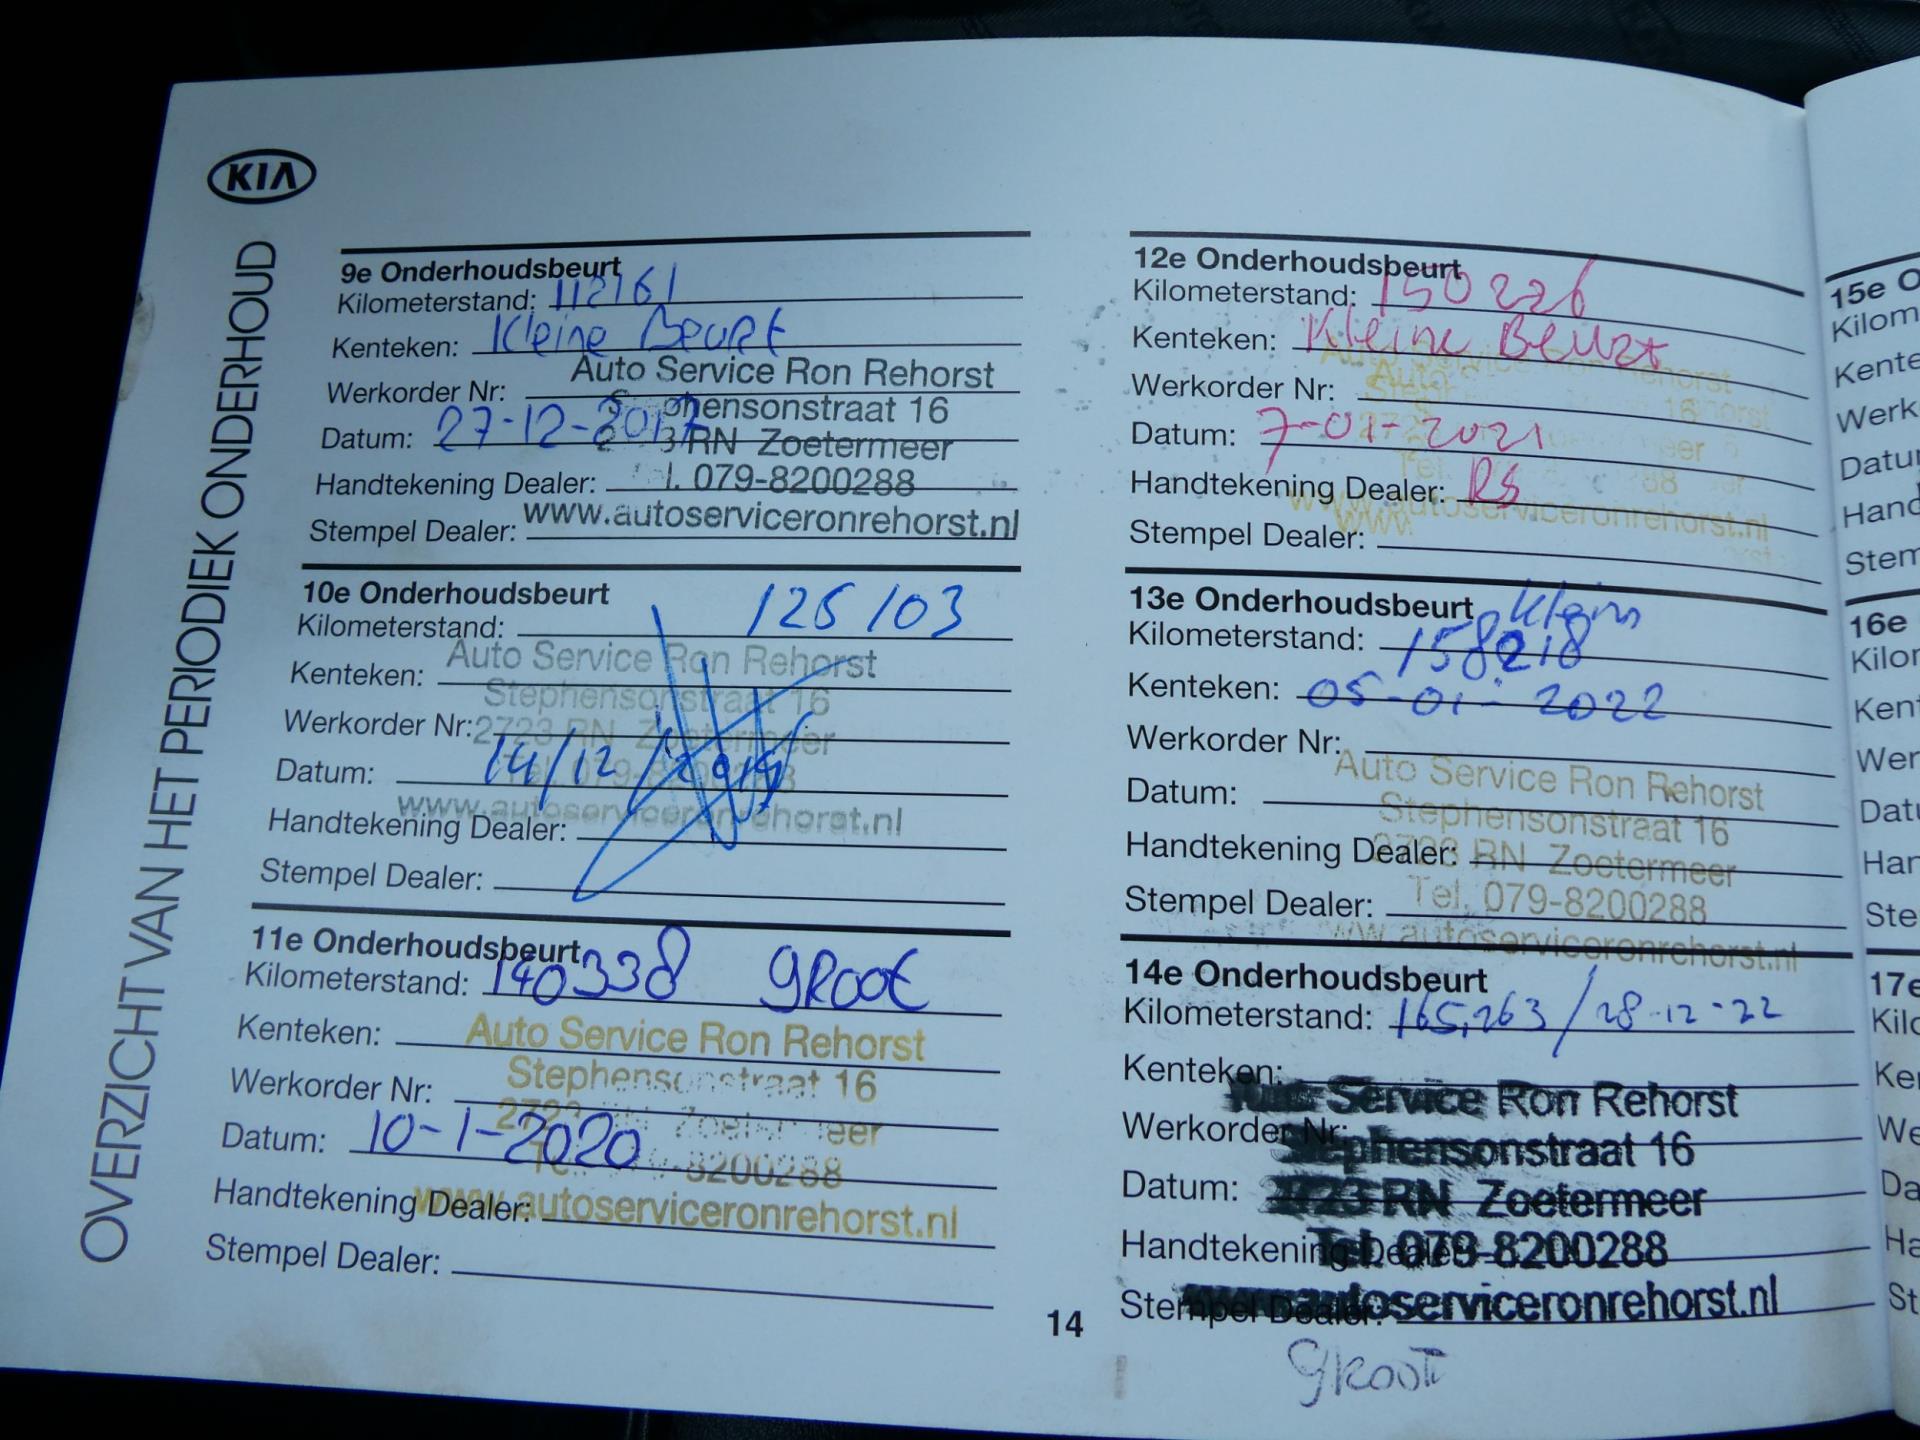 KIA
OVERZICHT VAN HET PERIODIEK ONDERHOUD
9e Onderhoudsbeurt
Kilometerstand: 112161
Kenteken: Kleine Beurt
Auto Service Ron Rehorst
Werkorder Nr:
Stephensonstraat 16
Datum: 27-12-2017
RN Zoetermeer
Handtekening Dealer:
079-8200288
Stempel Dealer:
www.autoserviceronrehorst.nl
10e Onderhoudsbeurt
Kilometerstand: 126103
Auto Service Ron Rehorst
Kenteken:
Stephensonstraat 16
Werkorder Nr:
2723 RN Zoetermeer
Datum: 14/12/
Tel. 079-8200288
www.autoserviceronrehorst.nl
Handtekening Dealer:
Stempel Dealer:
11e Onderhoudsbeurt
Kilometerstand: 140338 groot
Kenteken:
Auto Service Ron Rehorst
Stephensonstraat 16
Werkorder Nr:
2723 RN Zoetermeer
Datum: 10-1-2020
8200288
Handtekening Dealer:
www.autoserviceronrehorst.nl
Stempel Dealer:
12e Onderhoudsbeurt
Kilometerstand: 150226
Kenteken: Kleine Beurt
Werkorder Nr:
Datum: 7-01-2021
Handtekening Dealer: RS
www.autoserviceronrehorst.nl
Stempel Dealer:
13e Onderhoudsbeurt Klein
Kilometerstand: 158218
Kenteken: 05-01-2022
Werkorder Nr:
Auto Service Ron Rehorst
Datum:
Stephensonstraat 16
Handtekening Dealer:
2723 RN Zoetermeer
Stempel Dealer:
Tel. 079-8200288
www.autoserviceronrehorst.nl
14e Onderhoudsbeurt
Kilometerstand: 165,263 / 28-12-22
Kenteken:
Auto Service Ron Rehorst
Werkorder Nr:
Stephensonstraat 16
Datum:
2723 RN Zoetermeer
Handtekening Dealer:
Tel. 079-8200288
Stempel Dealer:
www.autoserviceronrehorst.nl
groot
14
15e O
Kilom
Kente
Werk
Datu
Hand
Stem
16e
Kilor
Kent
Wer
Datu
Har
Ste
17e
Kilo
Ke
We
Da
Ha
St